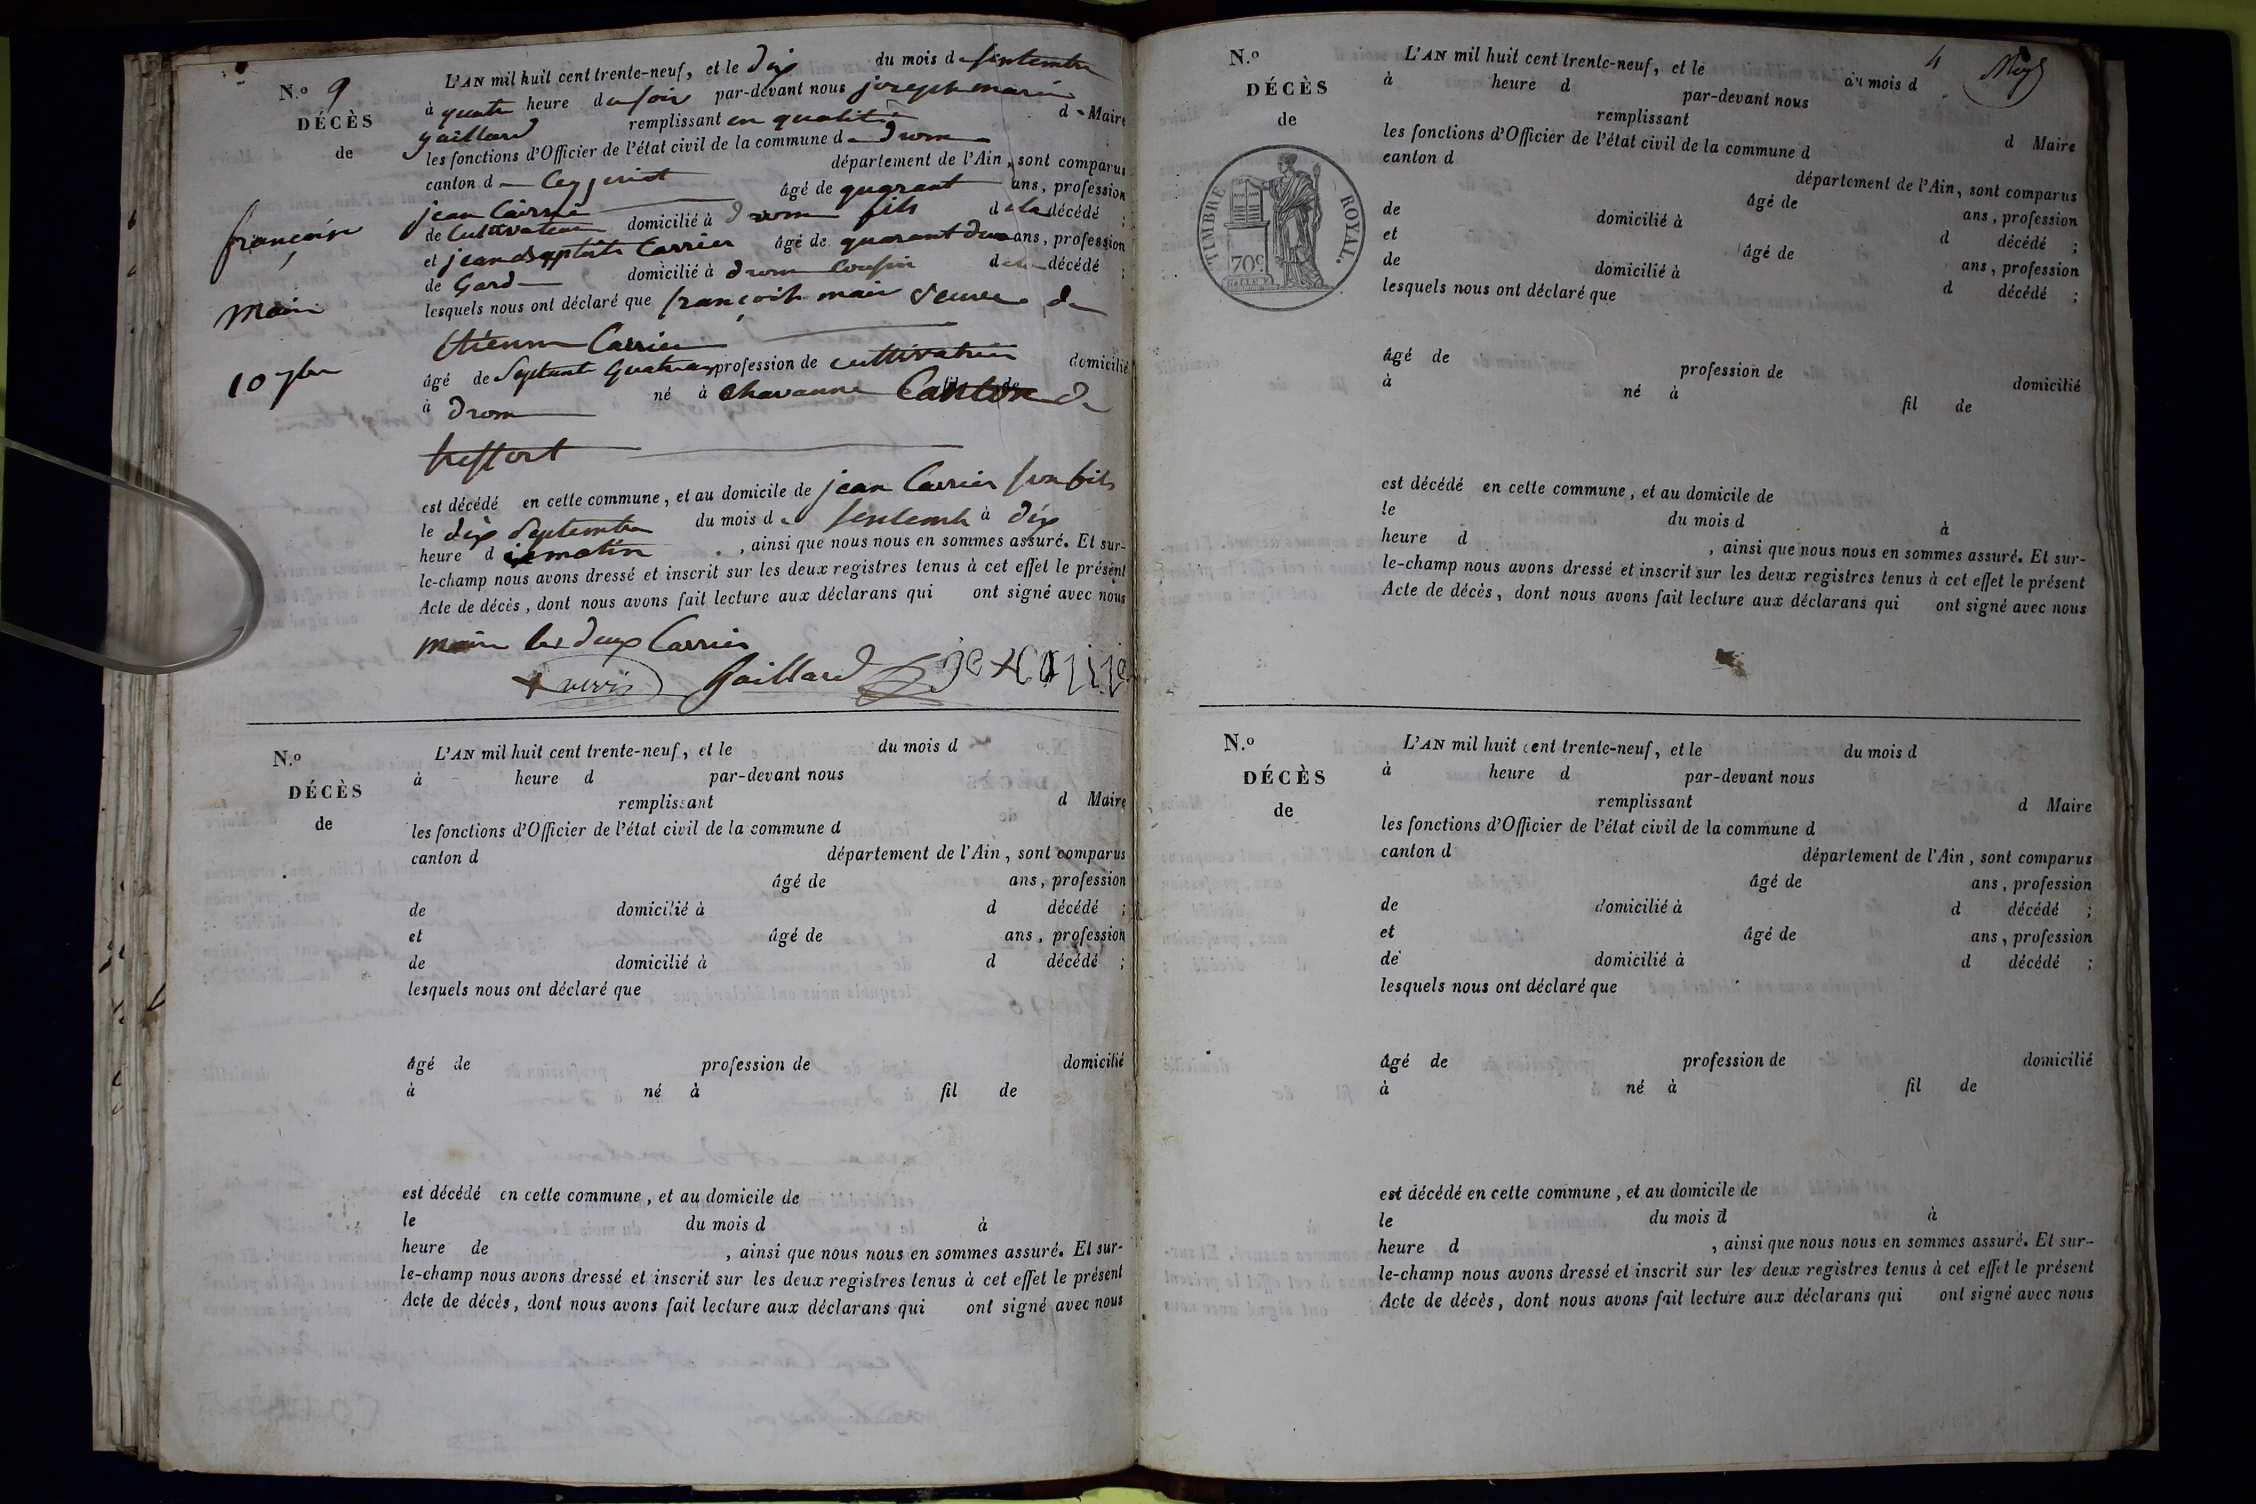 N.o 9
DÉCÈS
de
françoise
main
10 7bre
L'AN mil huit cent trente-neuf, et le dix du mois de septembre
à quatre heure du soir par-devant nous joseph marin
gaillard remplissant en qualité de Maire
les fonctions d'Officier de l'état civil de la commune de drom
canton de Ceyzeriat département de l'Ain, sont comparus
jean Carrier âgé de quarant ans, profession
de Cultivateur domicilié à drom fils de la décédé ;
et jean Baptiste Carrier âgé de quarant deux ans, profession
de Garde domicilié à drom Cousin de la décédé ;
lesquels nous ont déclaré que françoise main veuve de
etienne Carrier
âgé de Septante quatre ans profession de cultivatrice domicilié
à drom né à chavanne Canton de
treffort
est décédé en cette commune, et au domicile de jean Carrier son fils
le dix Septembre du mois de septembre à dix
heure d matin , ainsi que nous nous en sommes assuré. Et sur-
le-champ nous avons dressé et inscrit sur les deux registres tenus à cet effet le présent
Acte de décès, dont nous avons fait lecture aux déclarans qui ont signé avec nous
les deux Carrier
Gaillard
N.o
DÉCÈS
de
L'AN mil huit cent trente-neuf, et le du mois d
à heure d par-devant nous
remplissant d Maire
les fonctions d'Officier de l'état civil de la commune d
canton d département de l'Ain, sont comparus
âgé de ans, profession
de domicilié à d décédé ;
et âgé de ans, profession
de domicilié à d décédé ;
lesquels nous ont déclaré que
âgé de profession de domicilié
à né à fil de
est décédé en cette commune, et au domicile de
le du mois d à
heure de , ainsi que nous nous en sommes assuré. Et sur-
le-champ nous avons dressé et inscrit sur les deux registres tenus à cet effet le présent
Acte de décès, dont nous avons fait lecture aux déclarans qui ont signé avec nous
4
N.o
DÉCÈS
de
TIMBRE ROYAL.
70c
L'AN mil huit cent trente-neuf, et le du mois d
à heure d par-devant nous
remplissant d Maire
les fonctions d'Officier de l'état civil de la commune d
canton d département de l'Ain, sont comparus
âgé de ans, profession
de domicilié à d décédé ;
et âgé de ans, profession
de domicilié à d décédé ;
lesquels nous ont déclaré que
âgé de profession de domicilié
à né à fil de
est décédé en cette commune, et au domicile de
le du mois d à
heure d , ainsi que nous nous en sommes assuré. Et sur-
le-champ nous avons dressé et inscrit sur les deux registres tenus à cet effet le présent
Acte de décès, dont nous avons fait lecture aux déclarans qui ont signé avec nous
N.o
DÉCÈS
de
L'AN mil huit cent trente-neuf, et le du mois d
à heure d par-devant nous
remplissant d Maire
les fonctions d'Officier de l'état civil de la commune d
canton d département de l'Ain, sont comparus
âgé de ans, profession
de domicilié à d décédé ;
et âgé de ans, profession
de domicilié à d décédé ;
lesquels nous ont déclaré que
âgé de profession de domicilié
à né à fil de
est décédé en cette commune, et au domicile de
le du mois d à
heure d , ainsi que nous nous en sommes assuré. Et sur-
le-champ nous avons dressé et inscrit sur les deux registres tenus à cet effet le présent
Acte de décès, dont nous avons fait lecture aux déclarans qui ont signé avec nous